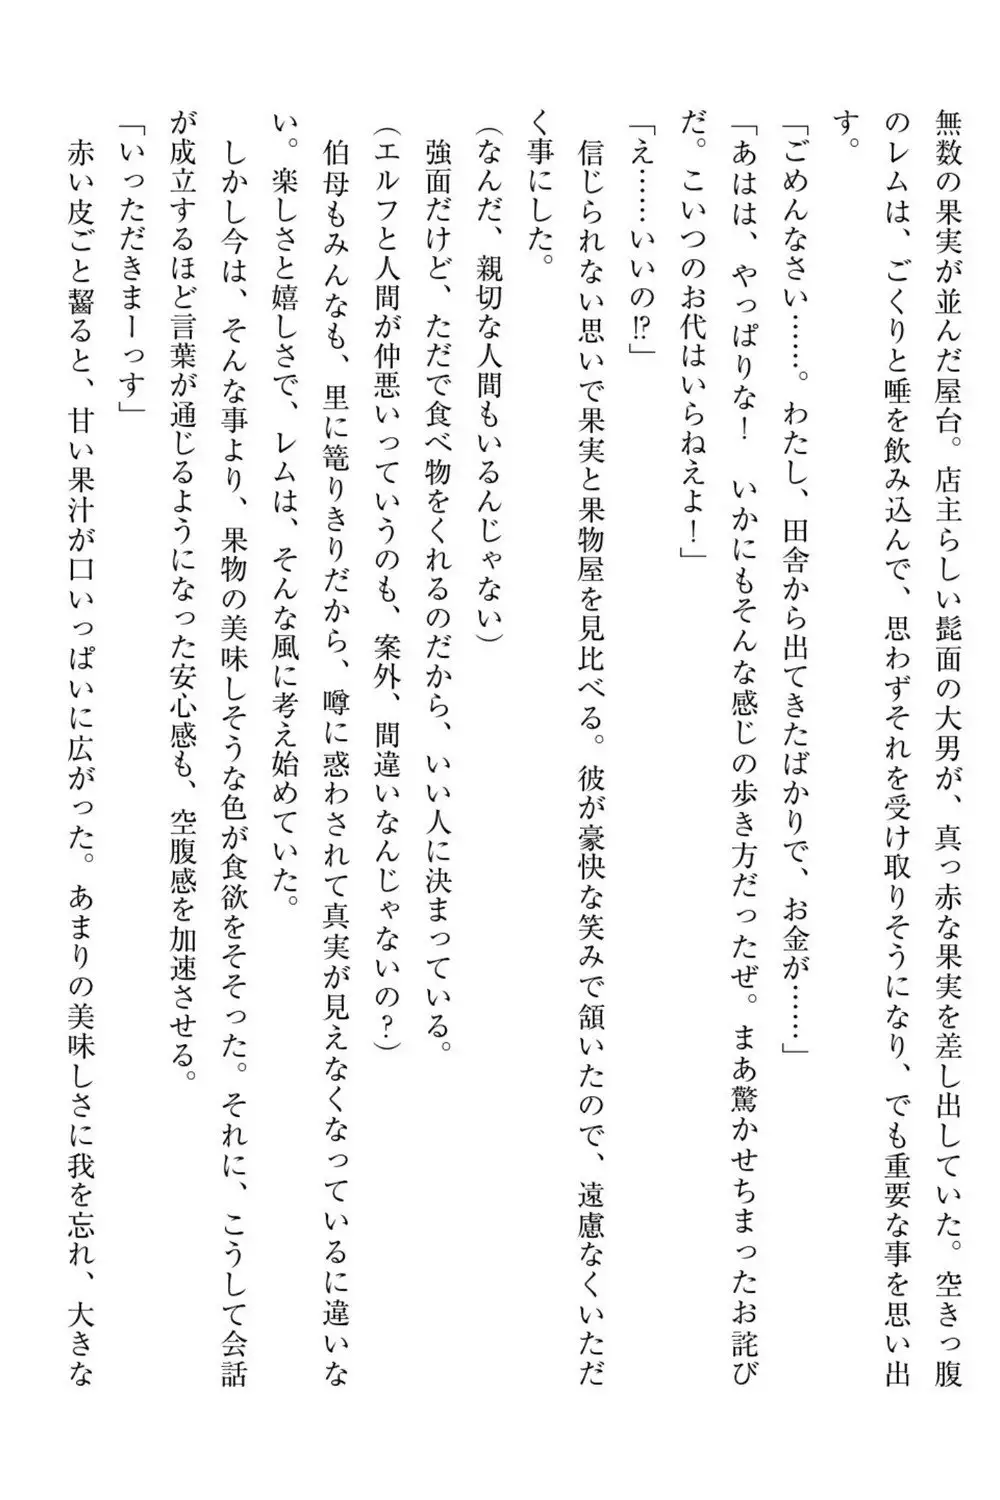 無数の果実が並んだ屋台。店主らしい髭面の大男が、真っ赤な果実を差し出していた。空きっ腹
のレムは、ごくりと唾を飲み込んで、思わずそれを受け取りそうになり、でも重要な事を思い出
す。
「ごめんなさい……。わたし、田舎から出てきたばかりで、お金が……」
「あはは、やっぱりな！　いかにもそんな感じの歩き方だったぜ。まあ驚かせちまったお詫び
だ。こいつのお代はいらねえよ！」
「え……いいの⁉」
　信じられない思いで果実と果物屋を見比べる。彼が豪快な笑みで頷いたので、遠慮なくいただ
く事にした。
（なんだ、親切な人間もいるんじゃない）
　強面だけど、ただで食べ物をくれるのだから、いい人に決まっている。
（エルフと人間が仲悪いっていうのも、案外、間違いなんじゃないの？）
　伯母もみんなも、里に篭りきりだから、噂に惑わされて真実が見えなくなっているに違いな
い。楽しさと嬉しさで、レムは、そんな風に考え始めていた。
　しかし今は、そんな事より、果物の美味しそうな色が食欲をそそった。それに、こうして会話
が成立するほど言葉が通じるようになった安心感も、空腹感を加速させる。
「いっただきまーっす」
　赤い皮ごと齧ると、甘い果汁が口いっぱいに広がった。あまりの美味しさに我を忘れ、大きな